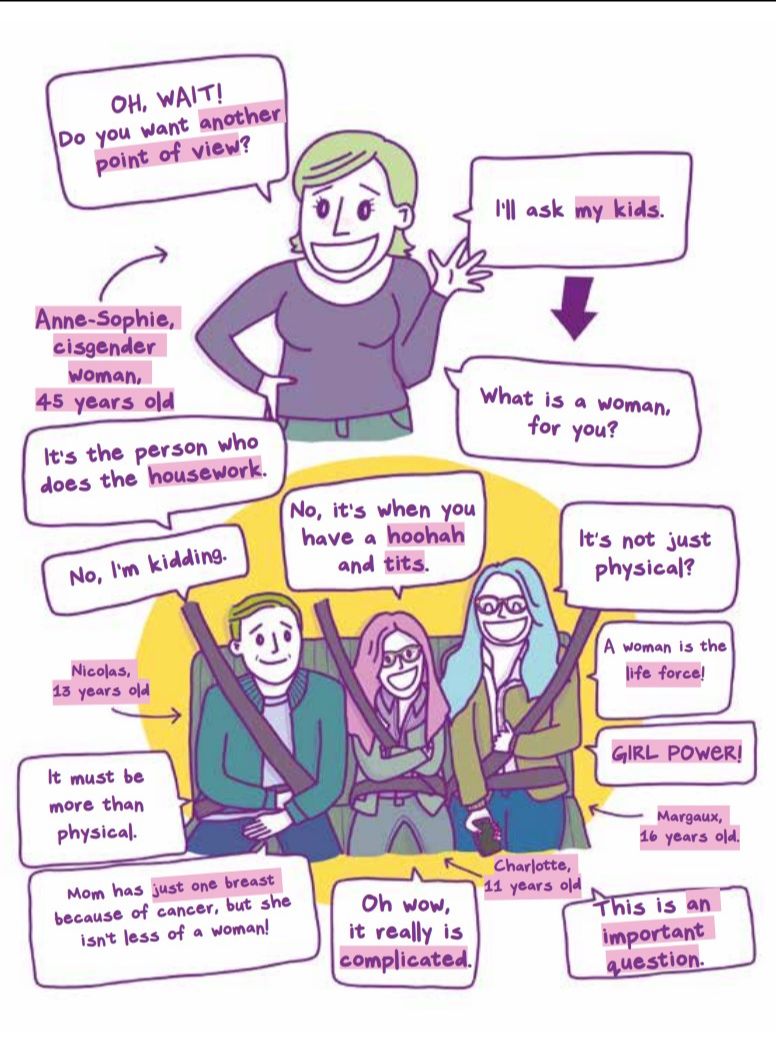 OH, WAIT!
Do you want another
point of view?
I'll ask my kids.
Anne-Sophie,
cisgender
woman,
45 years old
What is a woman,
for you?
It's the person who
does the housework.
No, I'm kidding.
No, it's when you
have a hoohah
and tits.
It's not just
physical?
A woman is the
life force!
GIRL POWER!
Nicolas,
13 years old
It must be
more than
physical.
Margaux,
16 years old.
Mom has just one breast
because of cancer, but she
isn't less of a woman!
Charlotte,
11 years old
Oh wow,
it really is
complicated.
This is an
important
question.